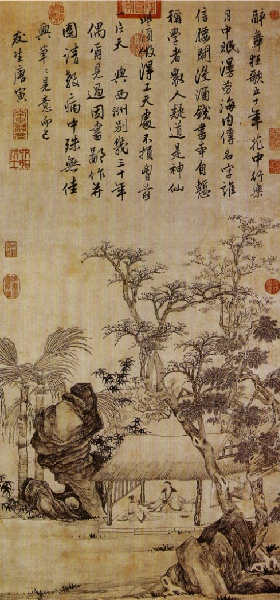 醉舞狂歌五十年花中行樂
月中眠漫勞海內傳名字誰
信腰間沒酒錢書本自慚
稱學者眾人疑道是神仙
些須做得工夫處不損胸前
一片天與西洲別幾三十年
偶爾見過因書鄙作并
圖請教病中殊無佳
興草草見意而已
友生唐寅